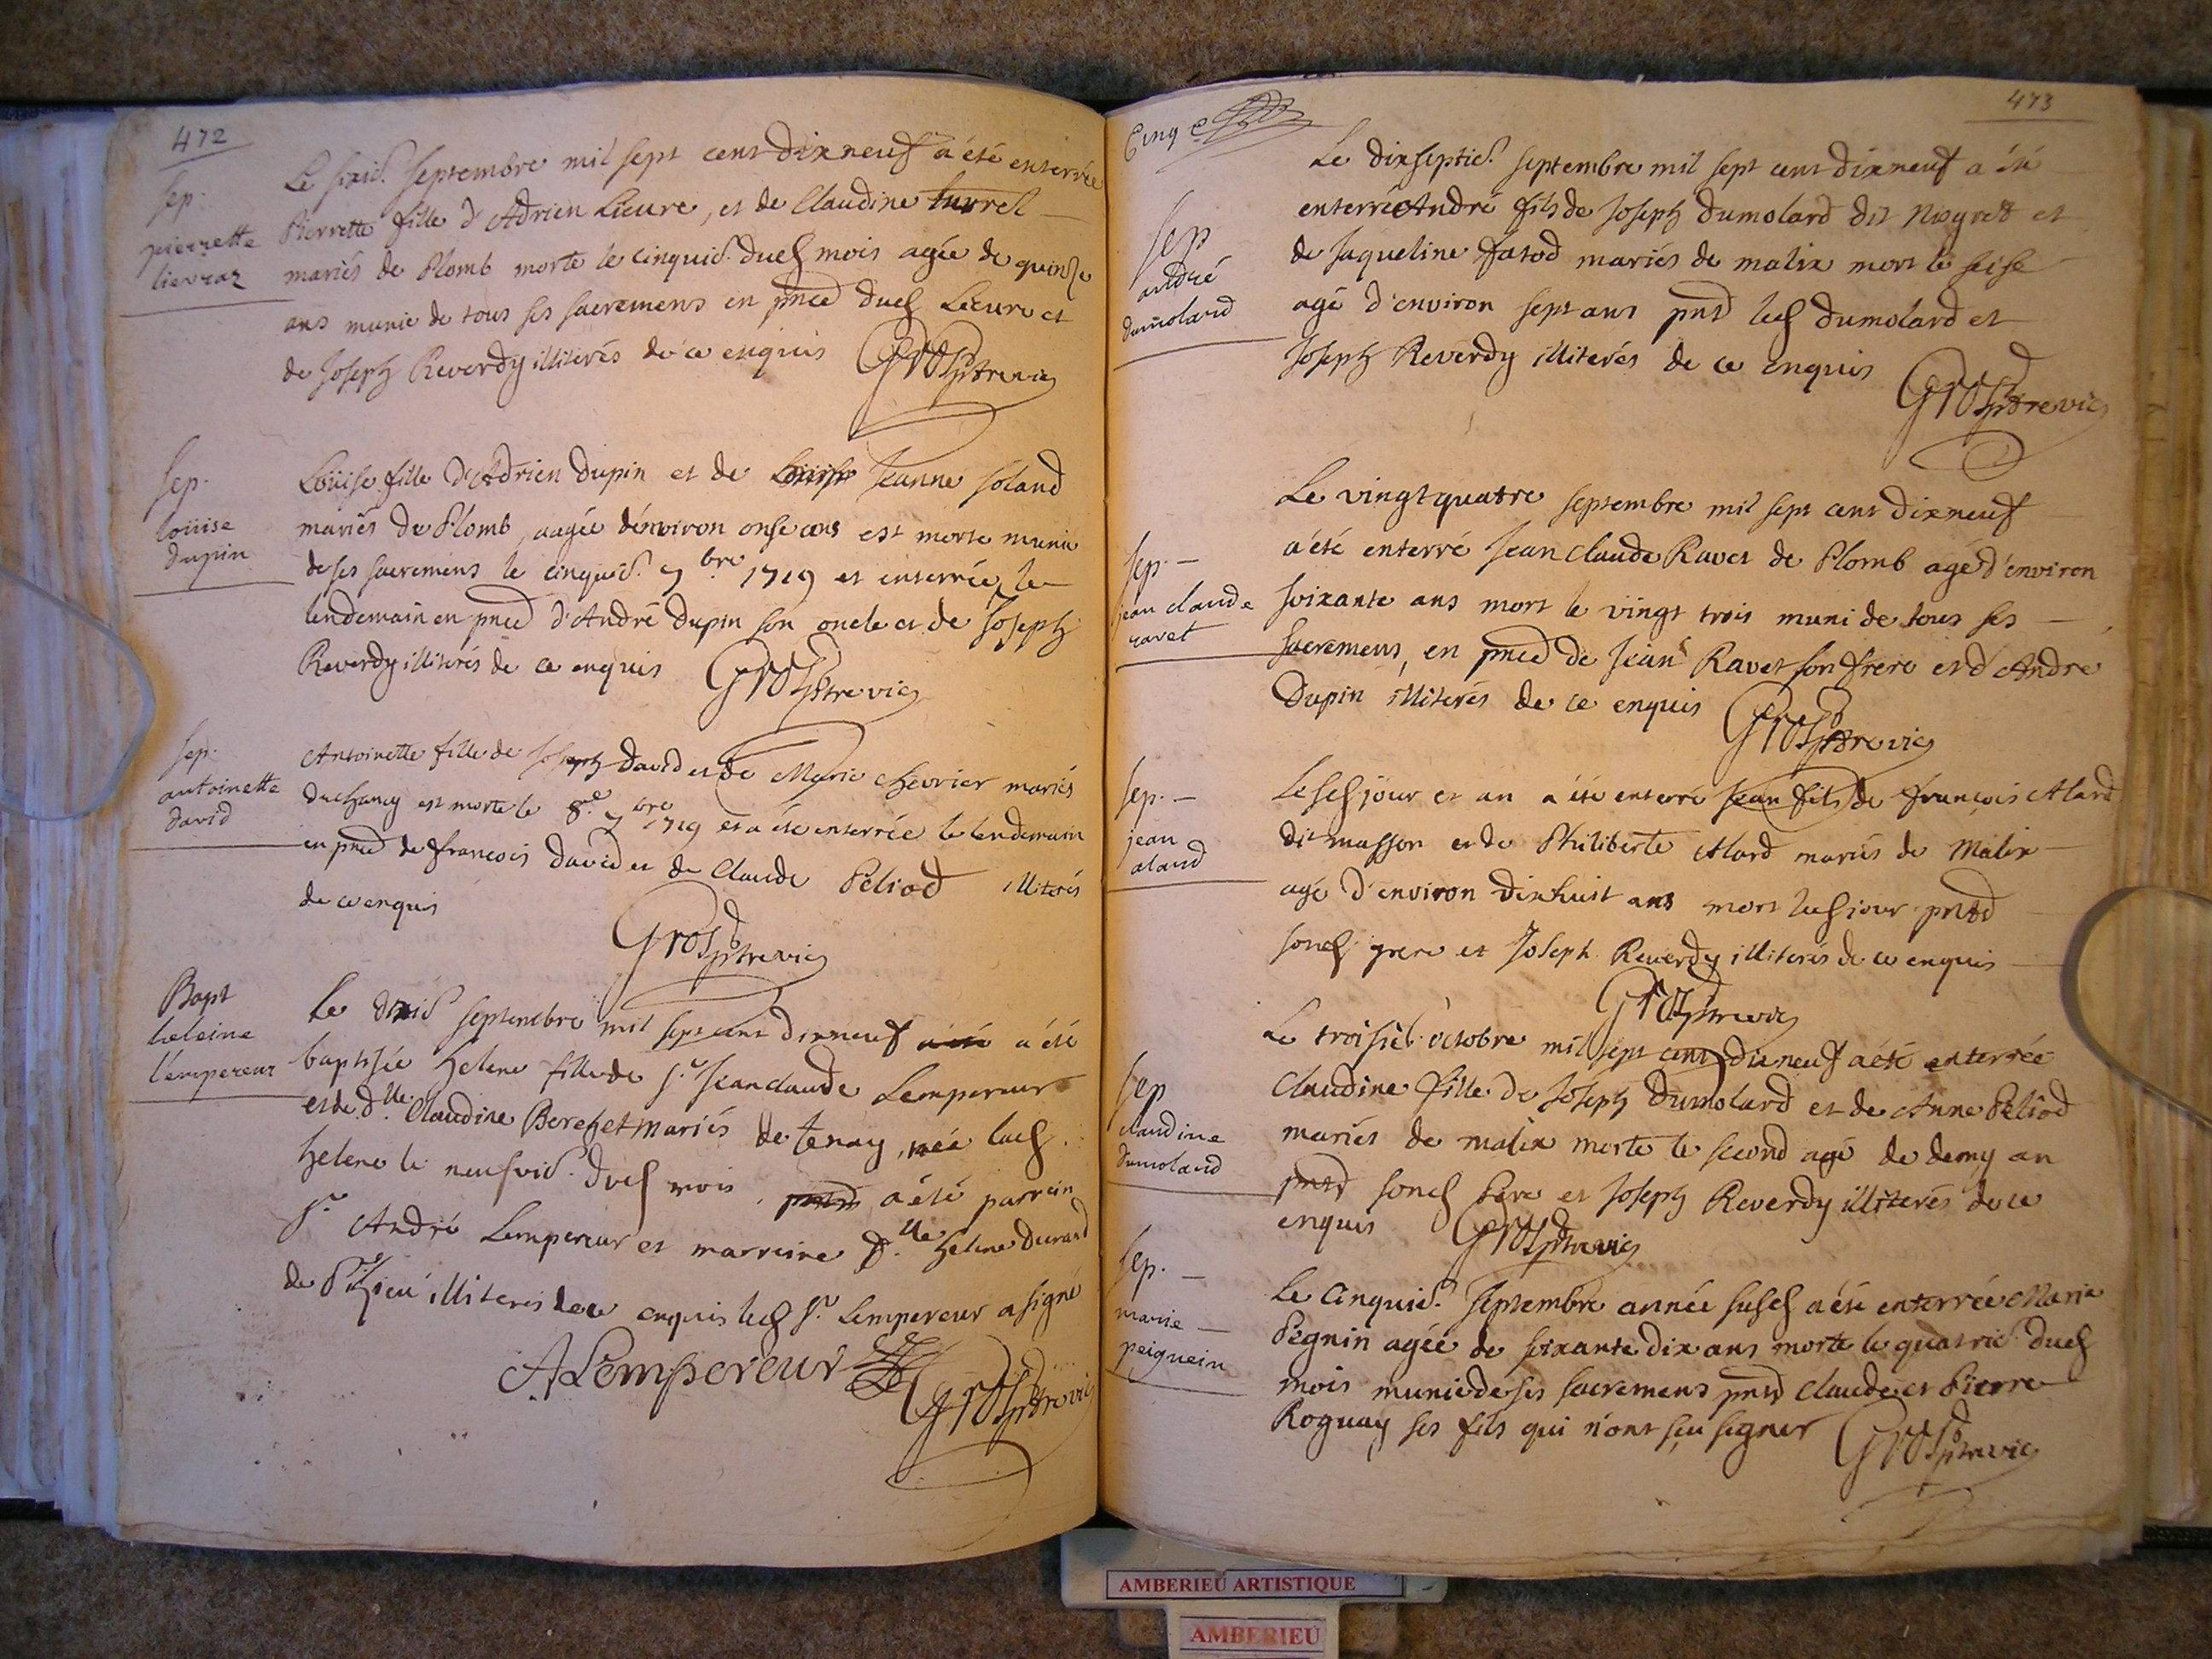 472
Sep.
pierrette
lievraz
Le sixid. septembre mil sept cent dixneuf a été enterrée
Pierrette fille d'Adrien Lieure, et de Claudine turrel
mariés de Plomb morte le cinquid. dud mois agée de quinze
ans munie de tous ses sacremens en pnced dud Lieure et
de Joseph Reverdy illiterés de ce enquis Gros ptre vic
Sep.
loüise
dupin
Loüise fille d'Adrien Dupin et de Jeanne Soland
mariés de Plomb, aagée d'environ onse ans est morte munie
de ses sacremens le cinquid. 7bre 1719 et enterrée le
lendemain en pnced d'André Dupin son oncle et de Joseph
Reverdy illiterés de ce enquis Gros ptre vic
Sep.
antoinette
david
Antoinette fille de Joseph David et de Marie Chevrier mariés
du est morte le 8e 7bre 1719 et a été enterrée le lendemain
en pnced de françois David et de Claude Peliod illiterés
de ce enquis
Gros ptre vic
Bapt
heleine
l'empereur
Le dixid septembre mil sept cent dixneuf a été a été
baptisée Helene fille de Sr Jean claude Lempereur
et de dlle Claudine Berchet mariés de tenay, née lad.
Helene le neufvid. dud mois, pntd a été parrein
Sr André Lempereur et marreine dlle Helene Durand
de illiteres de ce enquis led Sr Lempereur a signé
ALempereur Gros ptre vic
473
Cinq c
Sep
andré
dumolard
Le dixseptid. septembre mil sept cent dixneuf a été
enterré André fils de Joseph Dumolard dit et
de Jaqueline mariés de malix mort le seise
agé d'environ sept ans pntd led Dumolard et
Joseph Reverdy illiterés de ce enquis
Gros ptre vic
Sep. –
jean claude
ravet
Le vingt quatre septembre mil sept cent dixneuf
a été enterré Jean claude Ravet de Plomb agé d'environ
soixante ans mort le vingt trois muni de tous ses
sacremens, en pnced de Jean Ravet son frere et d'André
Dupin illiterés de ce enquis Gros ptre vic
Sep. –
jean
alard
Le sd jour et an a été enterré Jean fils de françois Alard
dit masson et de Philiberte Alard mariés de Malix
agé d'environ dixhuit ans mort led jour pntd
sond pere et Joseph Reverdy illiterés de ce enquis
Gros ptre vic
Sep
claudine
dumolard
Le troisie. octobre mil sept cent dixneuf a été enterrée
Claudine fille de Joseph Dumolard et de Anne Peliod
mariés de malix morte le second agé de demy an
pntd sond Pere et Joseph Reverdy illiterés de ce
enquis Gros ptre vic
Sep. –
marie –
peignein
Le cinquid. septembre année susd a été enterrée Marie
Pegnin agée de soixante dix ans morte le quatrid dud
mois munie de ses sacremens pntd Claude et Pierre
Roguay ses fils qui n'ont sçu signer Gros ptre vic
AMBERIEU ARTISTIQUE
AMBERIEU